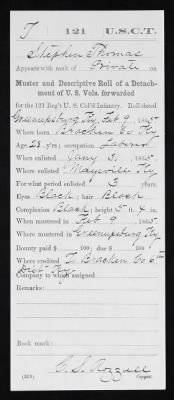 T | 121 | U.S.C.T.
Stephen Thomas
Appears with rank of Private on
Muster and Descriptive Roll of a Detach-
ment of U. S. Vols. forwarded
for the 121 Reg't U. S. Col'd Infantry. Roll dated
Greenupsburg Ky Feb 9, 1865.
Where born Bracken Co Ky
Age 28 y'rs; occupation Laborer
When enlisted Jany 31, 1865.
Where enlisted Maysville Ky
For what period enlisted 3 years.
Eyes Black; hair Black
Complexion Black; height 5 ft. 4 in.
When mustered in Feb 9, 1865.
Where mustered in Greenupsburg Ky
Bounty paid $ 100; due $ 100
Where credited Bracken Co 6th
Dist Ky
Company to which assigned
Remarks:
Book mark:
(339) Copyist.